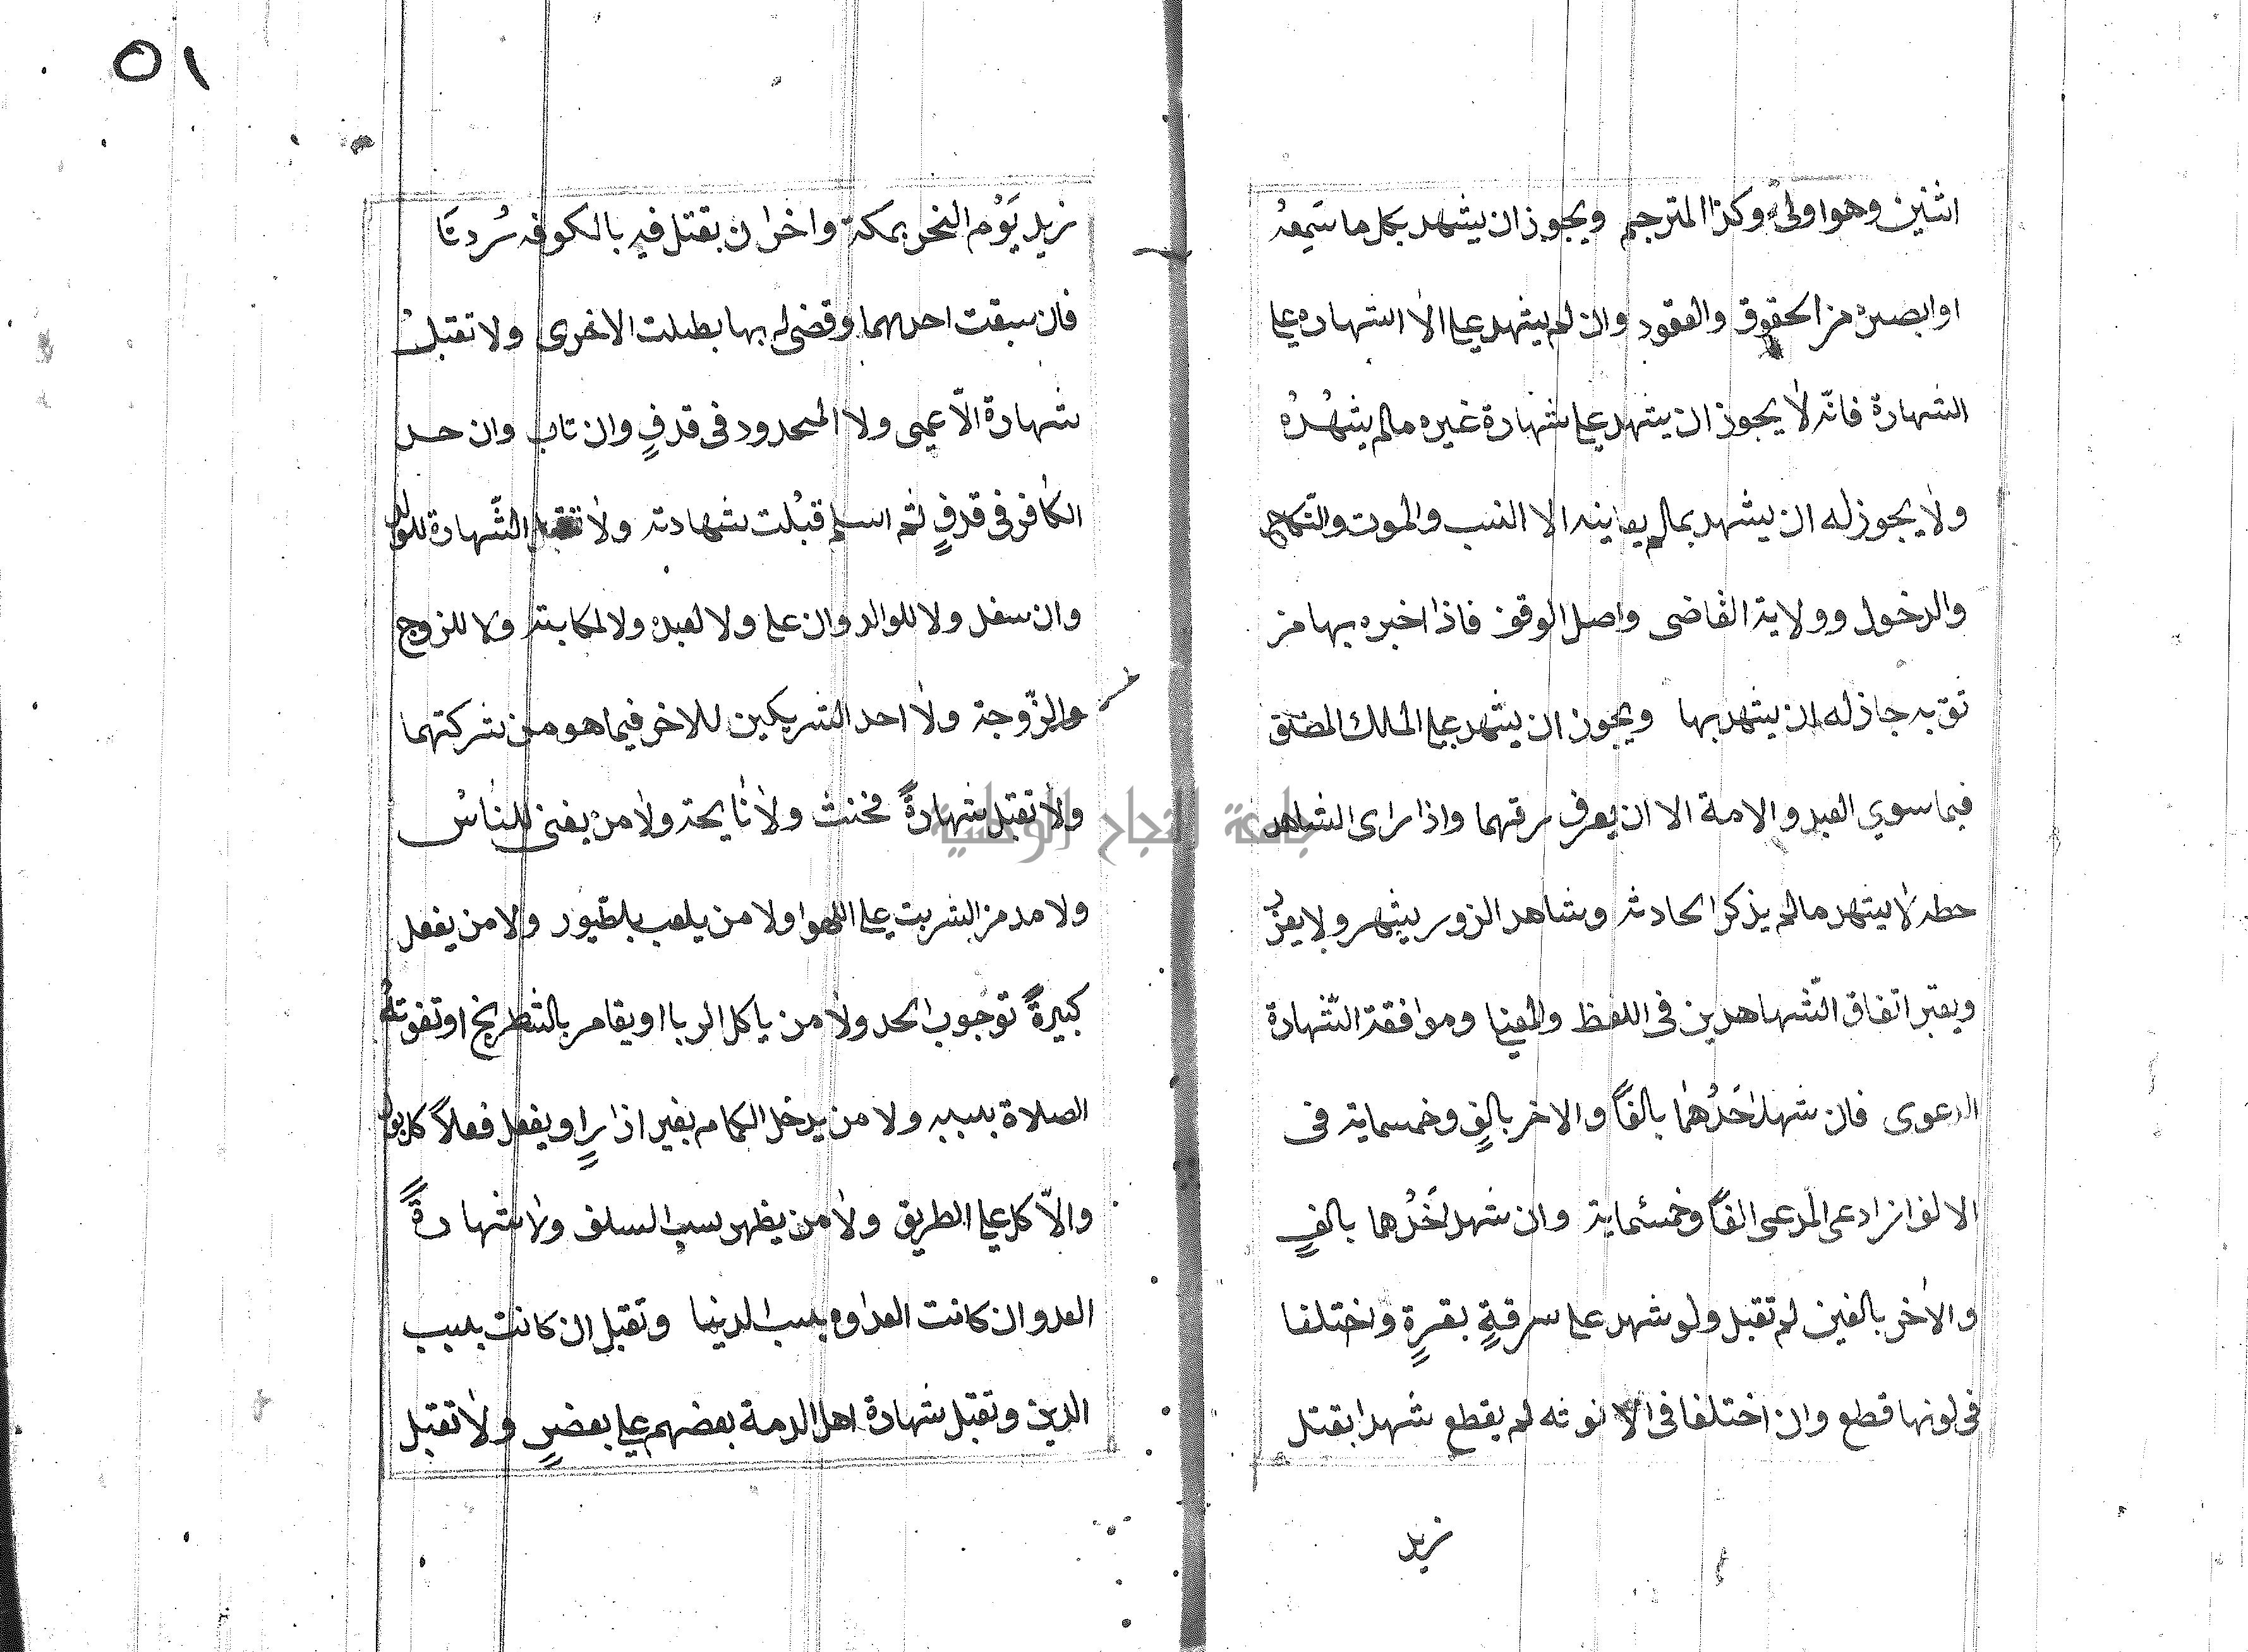 اثنين وهو اولي وكذا المترجم ويجوز ان يشهد بكل ما سَمِعهُ
او ابصره من الحقوق والعقود وان لم يشهد علي الا الشهاده علي
الشهادة فانّه لا يجوز ان يشهد علي شهادة غيره مالم يشهُدُه
ولا يجوز له ان يشهد بمالم يعاينه الا النسب والموت والنّكاح
والدخول وولاية القاضى واصل الوقف فاذا اخبره بها من
تق به جاز له ان يشهد بها ويجوز ان يشهد علي الملك المطلق
فيما سوي العبد والامة الا ان يعرف رقهما واذا راى الشاهد
خطه لا يشهد مالم يذكر الحادثه وشاهد الزور يشهر ولا يعزر
ويعتبر اتفاق الشّهاهدين فى اللفظ والمعنا وموافقة الشّهادة
الدعوى فان شهد احَدُهُما بالفاً والاخر بالفٍ وخمسماية فى
الالف ان ادعى المدعى الفاً وخمسُماية وان شهد احَدُهما بالفٍ
والاخر بالفين لم تقبل ولو شهد علي سرقةٍ بقرةٍ واختلفا
فى لونها قطع وان اختلفا فى الانوثه لم يقطع شهدا بقتل
زيد
٥١
زيد يَوْم النحر بمكة واخران بقتل فيه بالكوفه رُدتَا
فان سبقت احدهما وقضى له بها بطلت الاخرى ولا تقبلُ
شهادة الّاعمى ولا المحدود فى قدفٍ وان تاب وان حد
الكافر فى قدفٍ ثم اسلم قبُلت شهادته ولا تقبل الشّهادة للولد
وان سفل ولا للوالد وان علي ولا لعبده ولا لمكاتبه ولا للزوج
والزّوجة ولا احد الشريكين للاخر فيما هو من شركتهما
ولا تقبل شهادةً مخنث ولا نايحة ولا من يغنى للناس
ولا مدمن الشربت علي اللهو ولا من يلعب بلطّيور ولا من يفعل
كبيرةً توجوب الحد ولا من ياكل الربا او يقامر بالشطرنج او تفوته
الصلاة بسببه ولا من يدخل الحمام بغير ازارٍ او يفعل فعلاً كالبول
والاّكل علي الطريق ولا من يظهر سب السلف ولا شهادةً
العدو ان كانت العداوه بسب الدنيا وتقبل ان كانت بسبب
الدين وتقبل شهادة اهل الدمة بعضهم علي بعضٍ ولا تقبل
جامعة النجاح الوطنية